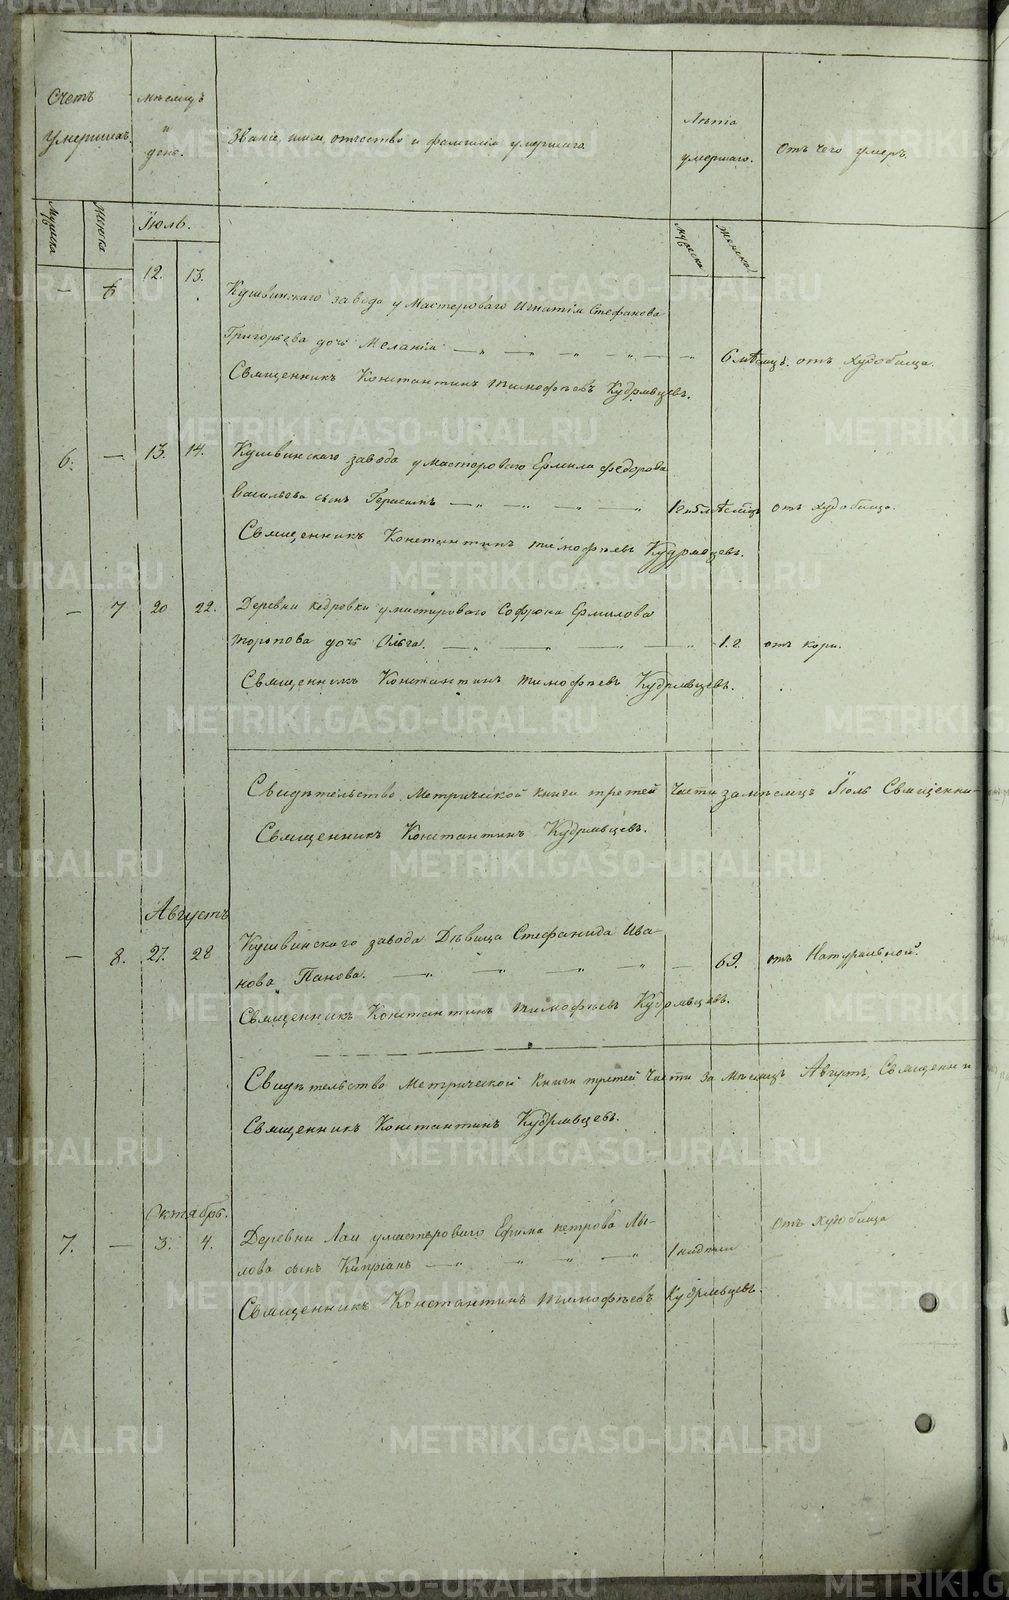 Счетъ умершихъ.
мѣсяцъ и день.
Званіе, имя, отчество и фамилія умершаго
Лѣта умершаго.
Отъ чего умеръ.
Мужска
Женска
Іюль.
мужеска
женска
— 6 12. 13. Кушвинскаго завода у Мастероваго Игнатія Стефанова
Григорьева дочь Меланія — 6 мѣсяцъ. отъ худобища.
Священникъ Константинъ Тимофѣевъ Кудрявцевъ.
6. — 13. 14. Кушвинскаго завода у мастероваго Ермила Федорова
Васильева сынъ Герасимъ — отъ худобища.
Священникъ Константинъ Тимофѣевъ Кудрявцевъ.
— 7 20 22. Деревни Кедровки у мастероваго Софрона Ермилова
Торопова дочь Ольга. — 1. г отъ кори.
Священникъ Константинъ Тимофѣевъ Кудрявцевъ.
Свидѣтельство Метрической книги третей Части за мѣсяцъ Іюль Священни-
Священникъ Константинъ Кудрявцевъ.
Августъ
— 8. 27. 28 Кушвинскаго завода Дѣвица Стефанида Ива-
нова Панова. — 69. отъ Натуральной.
Священникъ Константинъ Тимофѣевъ Кудрявцевъ.
Свидѣтельство Метрической Книги третей Части За Мѣсяцъ Августъ, Священни
Священникъ Константинъ Кудрявцевъ.
Октябрь.
7. — 3. 4. Деревни Лаи у мастероваго Ефима Петрова Лы-
лова сынъ Кипріанъ — 1 недели отъ худобища
Священникъ Константинъ Тимофѣевъ Кудрявцевъ.
METRIKI.GASO-URAL.RU